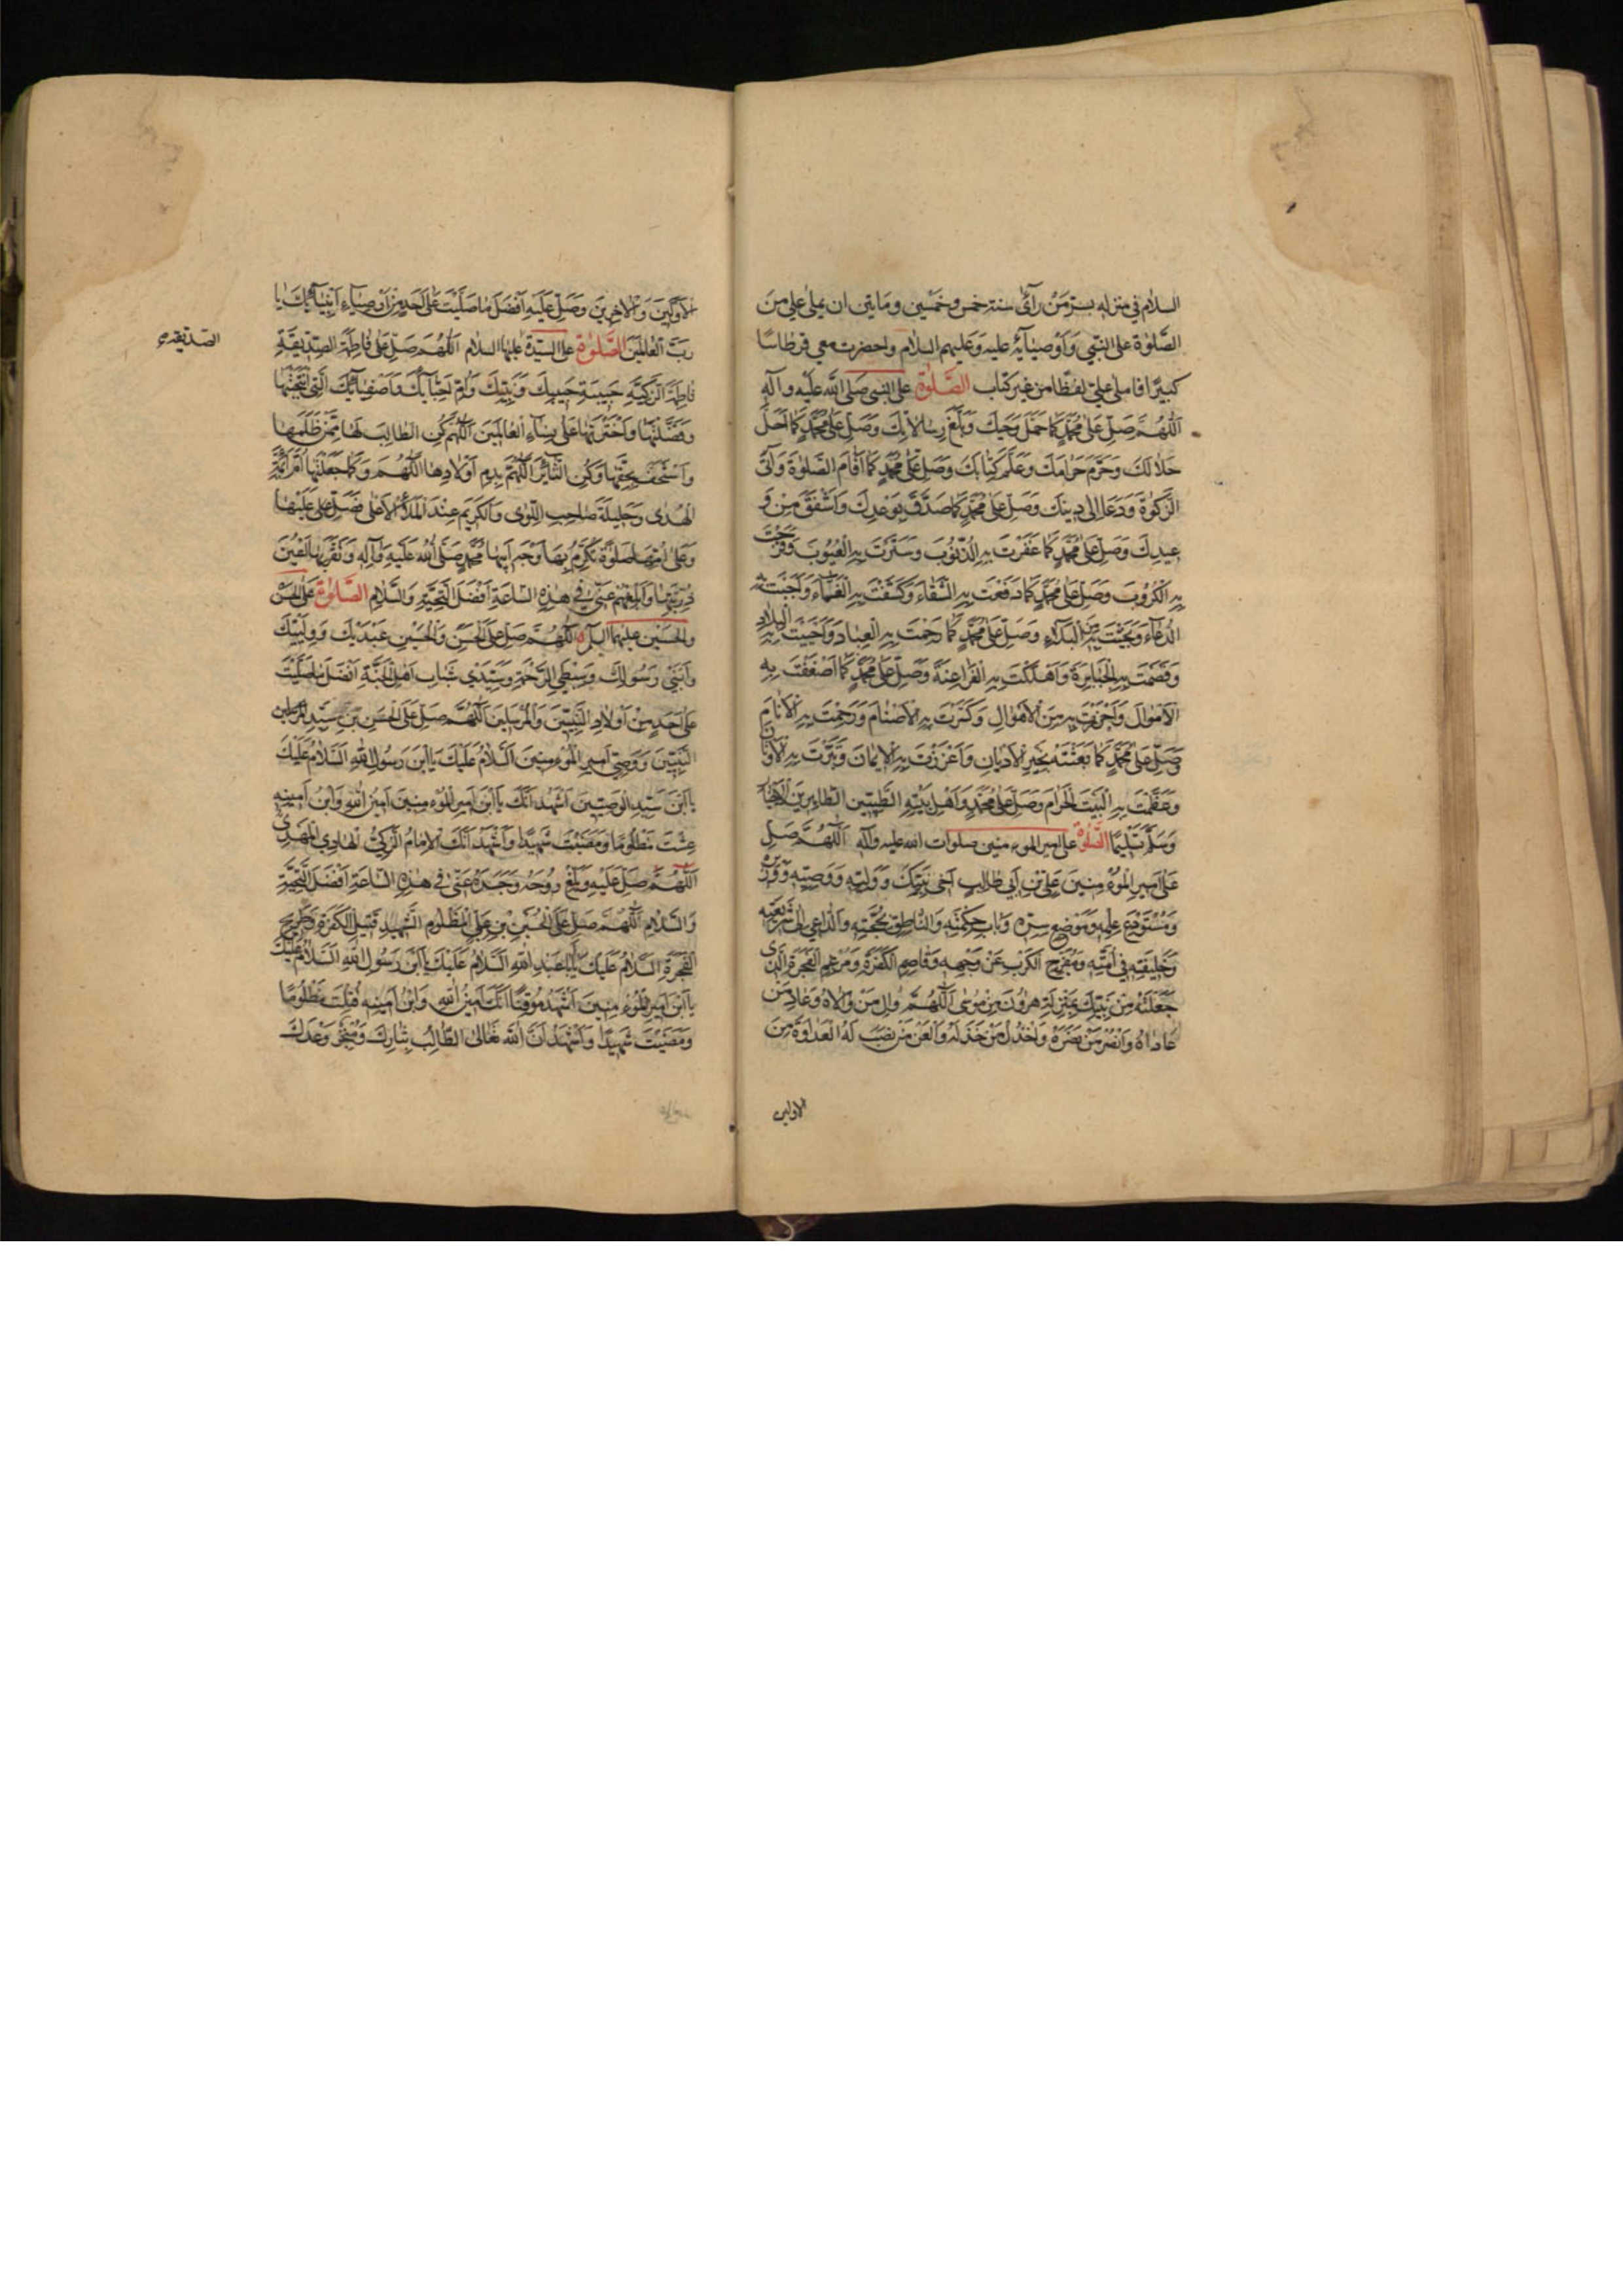 السلام في منزله بسر من رأى سنة خمس وخمسين ومايتين ان يملي علي من
الصَّلوٰة على النبي وَاَوصيَآئِه عليه وَعليهم السلام واحضرت معي قرطاسًا
كبيرًا فاملى عليّ لفظًا من غير كتاب الصَّلوٰة على النبى صلى الله عَليْه وآلِهِ
اَللّٰهُمَّ صَلِّ عَلىٰ مُحَمَّدٍ كَمَا حَمَلَ وَحْيَكَ وَبَلَّغَ رِسٰالاٰتِكَ وَصَلِّ عَلىٰ مُحَمَّدٍ كَمٰا اَحَلَّ
حَلاٰلَكَ وَحَرَّمَ حَرٰامَكَ وَعَلَّمَ كِتٰابَكَ وَصَلِّ عَلىٰ مُحَمَّدٍ كَمٰا اَقٰامَ الصَّلوٰةَ وَآتَى
الزَّكوٰةَ وَدَعَا اِلىٰ دِينِكَ وَصَلِّ عَلىٰ مُحَمَّدٍ كَمٰا صَدَّقَ بِوَعْدِكَ وَاَشْفَقَ مِنْ وَ
عِيدِكَ وَصَلِّ عَلىٰ مُحَمَّدٍ كَمٰا غَفَرْتَ بِهِ الذُّنُوبَ وَسَتَرْتَ بِهِ الْعُيُوبَ وَفَرَّجْتَ
بِهِ الْكُرُوبَ وَصَلِّ عَلىٰ مُحَمَّدٍ كَمٰا دَفَعْتَ بِهِ الشَّقٰاءَ وَكَشَفْتَ بِهِ الْغَمّٰاءَ وَاَجَبْتَ بِهِ
الدُّعٰاءَ وَنَجَّيْتَ بِهِ مِنَ الْبَلاٰءِ وَصَلِّ عَلىٰ مُحَمَّدٍ كَمٰا رَحِمْتَ بِهِ الْعِبٰادَ وَاَحْيَيْتَ بِهِ الْبِلاٰدَ
وَقَصَمْتَ بِهِ الْجَبٰابِرَةَ وَاَهْلَكْتَ بِهِ الْفَرٰاعِنَةَ وَصَلِّ عَلىٰ مُحَمَّدٍ كَمٰا اَضْعَفْتَ بِهِ
الْاَمْوٰالَ وَاَحْرَزْتَ بِهِ مِنَ الْاَهْوٰالِ وَكَسَرْتَ بِهِ الْاَصْنٰامَ وَرَحِمْتَ بِهِ الْاَنٰامَ
وَصَلِّ عَلىٰ مُحَمَّدٍ كَمٰا بَعَثْتَهُ بِخَيْرِ الْاَدْيٰانِ وَاَعْزَزْتَ بِهِ الْاِيمٰانَ وَتَبَّرْتَ بِهِ الْاَوْثٰانَ
وَعَظَّمْتَ بِهِ الْبَيْتَ الْحَرٰامَ وَصَلِّ عَلىٰ مُحَمَّدٍ وَاَهْلِ بَيْتِهِ الطَّيِّبِينَ الطّٰاهِرِينَ الْاَخْيٰارِ
وَسَلِّمْ تَسْلِيمًا الصَّلوٰة على امير المؤمنين صلوات الله عليه وآله اَللّٰهُمَّ صَلِّ
عَلىٰ اَمِيرِ الْمُؤْمِنِينَ عَلِيِّ بْنِ اَبِي طٰالِبٍ اَخِي نَبِيِّكَ وَوَلِيِّهِ وَوَصِيِّهِ وَوَزِيرِهِ
وَمُسْتَوْدَعِ عِلْمِهِ وَمَوْضِعِ سِرِّهِ وَبٰابِ حِكْمَتِهِ وَالنّٰاطِقِ بِحُجَّتِهِ وَالدّٰاعِي اِلىٰ شَرِيعَتِهِ
وَخَلِيفَتِهِ فِي اُمَّتِهِ وَمُفَرِّجِ الْكَرْبِ عَنْ وَجْهِهِ وَقٰاصِمِ الْكَفَرَةِ وَمُرْغِمِ الْفَجَرَةِ الَّذِي
جَعَلْتَهُ مِنْ نَبِيِّكَ بِمَنْزِلَةِ هٰرُونَ مِنْ مُوسىٰ اَللّٰهُمَّ وٰالِ مَنْ وٰالاٰهُ وَعٰادِ مَنْ
عٰادٰاهُ وَانْصُرْ مَنْ نَصَرَهُ وَاخْذُلْ مَنْ خَذَلَهُ وَالْعَنْ مَنْ نَصَبَ لَهُ الْعَدٰاوَةَ مِنَ
الاولين
الْاَوَّلِينَ وَالْاٰخِرِينَ وَصَلِّ عَلَيْهِ اَفْضَلَ مٰا صَلَّيْتَ عَلىٰ اَحَدٍ مِنْ اَوْصِيٰاءِ اَنْبِيٰآئِكَ يٰا
رَبَّ الْعٰالَمِينَ الصَّلوٰة على السيّدة عليها السلام اَللّٰهُمَّ صَلِّ عَلىٰ فٰاطِمَةَ الصِّدِّيقَةِ
الصديقة
فٰاطِمَةَ الزَّكِيَّةِ حَبِيبَةِ حَبِيبِكَ وَنَبِيِّكَ وَاُمِّ اَحِبّٰآئِكَ وَاَصْفِيٰآئِكَ الَّتِي انْتَجَبْتَهٰا
وَفَضَّلْتَهٰا وَاخْتَرْتَهٰا عَلىٰ نِسٰاءِ الْعٰالَمِينَ اَللّٰهُمَّ كُنِ الطّٰالِبَ لَهٰا مِمَّنْ ظَلَمَهٰا
وَاسْتَخَفَّ بِحَقِّهٰا وَكُنِ الثّٰائِرَ اَللّٰهُمَّ بِدَمِ اَوْلاٰدِهٰا اَللّٰهُمَّ وَكَمٰا جَعَلْتَهٰا اُمَّ اَئِمَّةِ
الْهُدىٰ وَحَلِيلَةَ صٰاحِبِ اللِّوٰى وَالْكَرِيمَ عِنْدَ الْمَلَأِ الْاَعْلىٰ فَصَلِّ عَلَيْهٰا
وَعَلىٰ اُمِّهٰا صَلوٰةً تُكْرِمُ بِهٰا وَجْهَ اَبِيهٰا مُحَمَّدٍ صَلَّى اللهُ عَلَيْهِ وَآلِهِ وَتُقِرُّ بِهٰا اَعْيُنَ
ذُرِّيَّتِهٰا وَاَبْلِغْهُمْ عَنِّي فِي هٰذِهِ السّٰاعَةِ اَفْضَلَ التَّحِيَّةِ وَالسَّلاٰمِ الصَّلوٰة عَلَى الحسن
والحسين عليهما السلام اَللّٰهُمَّ صَلِّ عَلَى الْحَسَنِ وَالْحُسَيْنِ عَبْدَيْكَ وَوَلِيَّيْكَ
وَابْنَيْ رَسُولِكَ وَسِبْطَيِ الرَّحْمَةِ وَسَيِّدَيْ شَبٰابِ اَهْلِ الْجَنَّةِ اَفْضَلَ مٰا صَلَّيْتَ
عَلىٰ اَحَدٍ مِنْ اَوْلاٰدِ النَّبِيِّينَ وَالْمُرْسَلِينَ اَللّٰهُمَّ صَلِّ عَلَى الْحَسَنِ بْنِ سَيِّدِ
النَّبِيِّينَ وَوَصِيِّ اَمِيرِ الْمُؤْمِنِينَ اَلسَّلاٰمُ عَلَيْكَ يَا بْنَ رَسُولِ اللهِ اَلسَّلاٰمُ عَلَيْكَ
يَا بْنَ سَيِّدِ الْوَصِيِّينَ اَشْهَدُ اَنَّكَ يَا بْنَ اَمِيرِ الْمُؤْمِنِينَ اَمِينُ اللهِ وَابْنُ اَمِينِهِ
عِشْتَ مَظْلُومًا وَمَضَيْتَ شَهِيدًا وَاَشْهَدُ اَنَّكَ الْاِمٰامُ الزَّكِيُّ الْهٰادِي الْمَهْدِيُّ
اَللّٰهُمَّ صَلِّ عَلَيْهِ وَبَلِّغْ رُوحَهُ وَجَسَدَهُ عَنِّي فِي هٰذِهِ السّٰاعَةِ اَفْضَلَ التَّحِيَّةِ
وَالسَّلاٰمِ اَللّٰهُمَّ صَلِّ عَلَى الْحُسَيْنِ بْنِ عَلِيٍّ الْمَظْلُومِ الشَّهِيدِ قَتِيلِ الْكَفَرَةِ وَطَرِيحِ
الْفَجَرَةِ اَلسَّلاٰمُ عَلَيْكَ يٰا اَبٰا عَبْدِ اللهِ اَلسَّلاٰمُ عَلَيْكَ يَا بْنَ رَسُولِ اللهِ اَلسَّلاٰمُ عَلَيْكَ
يَا بْنَ اَمِيرِ الْمُؤْمِنِينَ اَشْهَدُ مُوقِنًا اَنَّكَ اَمِينُ اللهِ وَابْنُ اَمِينِهِ قُتِلْتَ مَظْلُومًا
وَمَضَيْتَ شَهِيدًا وَاَشْهَدُ اَنَّ اللهَ تَعٰالىٰ الطّٰالِبُ بِثٰارِكَ وَمُنْجِزٌ وَعْدَكَ